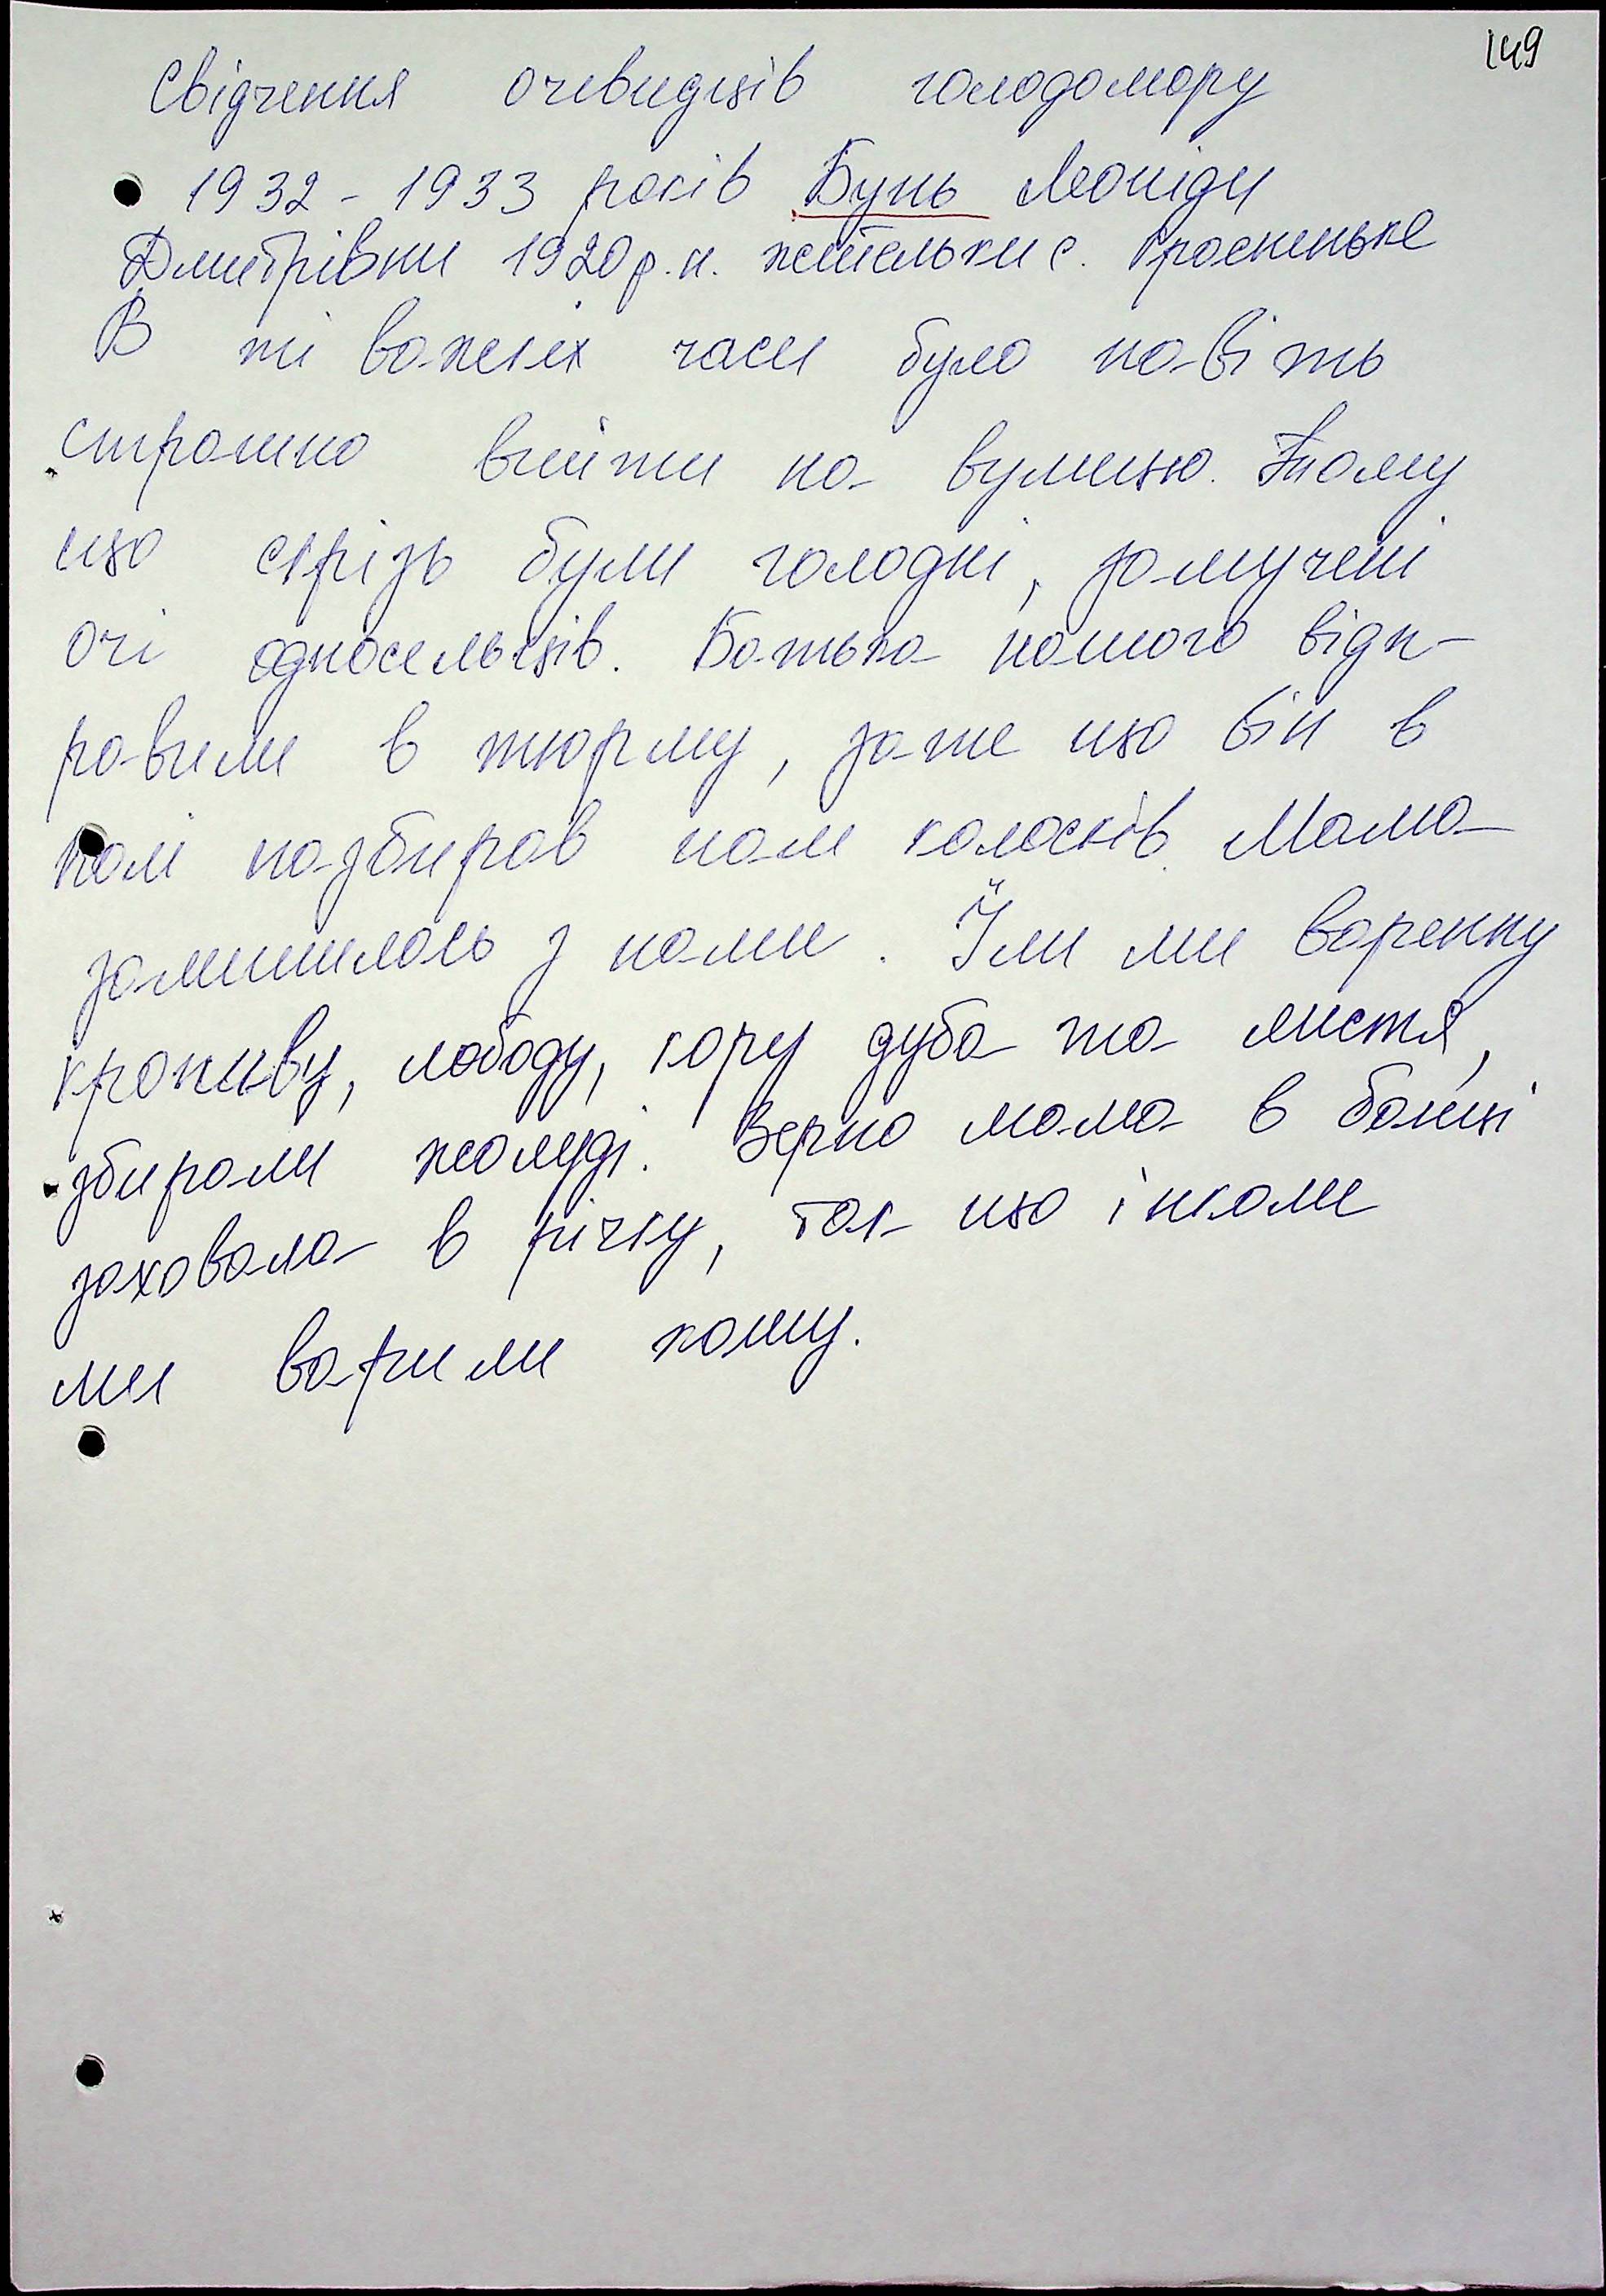 149
Свідчення очевидців голодомору
1932 - 1933 років Бунь Леоніди
Дмитрівни 1920 р.н. жительки с. Красненьке
В ті важких часи було навіть
страшно вийти на вулицю. Тому
що скрізь були голодні, замучені
очі односельців. Батька нашого відп-
равили в тюрму, за те що він в
полі назбирав нам колосків. Мама
залишилась з нами. Їли ми варенну
кропиву, лободу, кору дуба та листя,
збирали жолуді. Зерно мама в банці
заховала в річку, так що інколи
ми варили кашу.